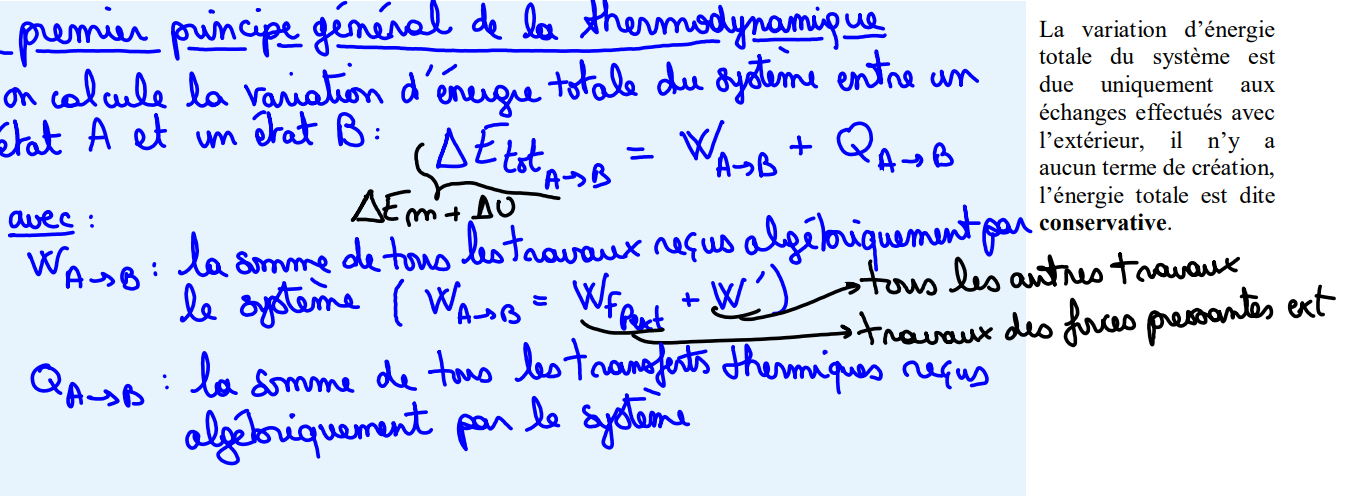 - premier principe général de la thermodynamique
on calcule la variation d'énergie totale du système entre un
état A et un état B :
ΔEtot A→B = W A→B + Q A→B
ΔEm + ΔU
avec :
W A→B : la somme de tous les travaux reçus algébriquement par
le système ( W A→B = W Fpext + W' )
tous les autres travaux
travaux des forces pressantes ext
Q A→B : la somme de tous les transferts thermiques reçus
algébriquement par le système
La variation d'énergie
totale du système est
due uniquement aux
échanges effectués avec
l'extérieur, il n'y a
aucun terme de création,
l'énergie totale est dite
conservative.